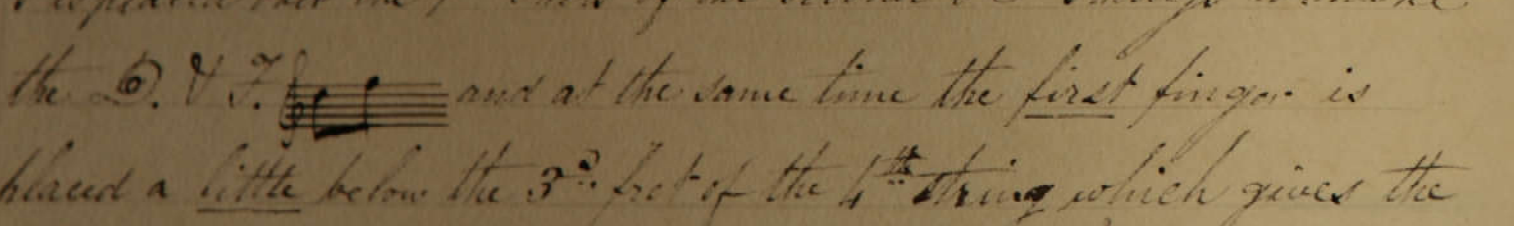 the D. & F. and at the same time the first finger is
placed a little below the 3d. fret of the 4th string which gives the